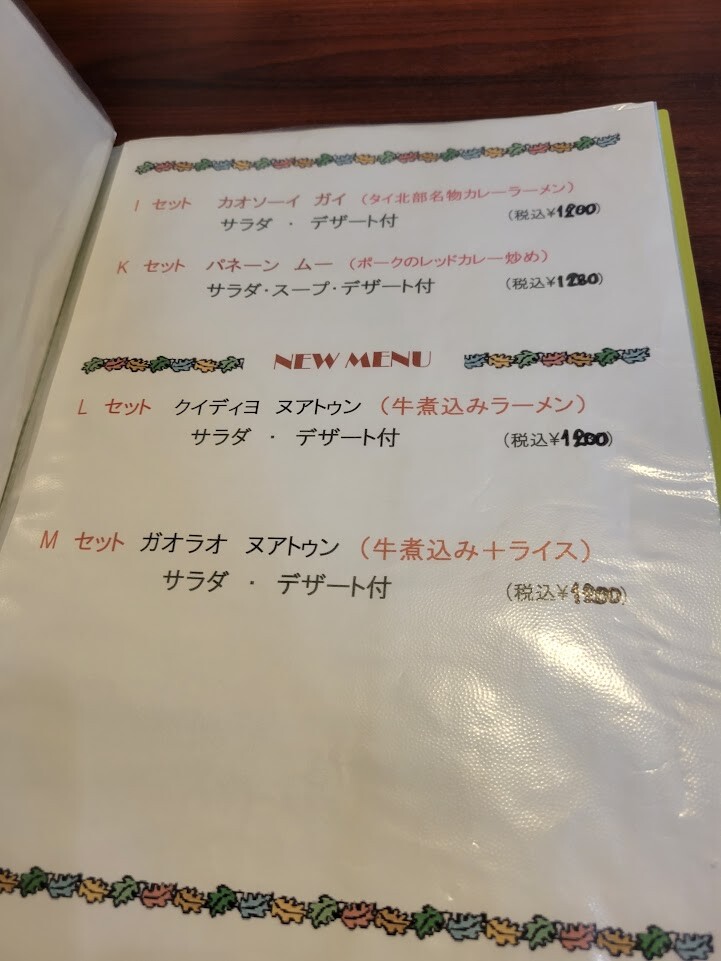 I セット カオソーイ ガイ (タイ北部名物カレーラーメン)
サラダ ・ デザート付 (税込¥1200)
K セット パネーン ムー (ポークのレッドカレー炒め)
サラダ・スープ・デザート付 (税込¥1280)
NEW MENU
L セット クイディヨ ヌアトゥン (牛煮込みラーメン)
サラダ ・ デザート付 (税込¥1200)
M セット ガオラオ ヌアトゥン (牛煮込み+ライス)
サラダ ・ デザート付 (税込¥1200)